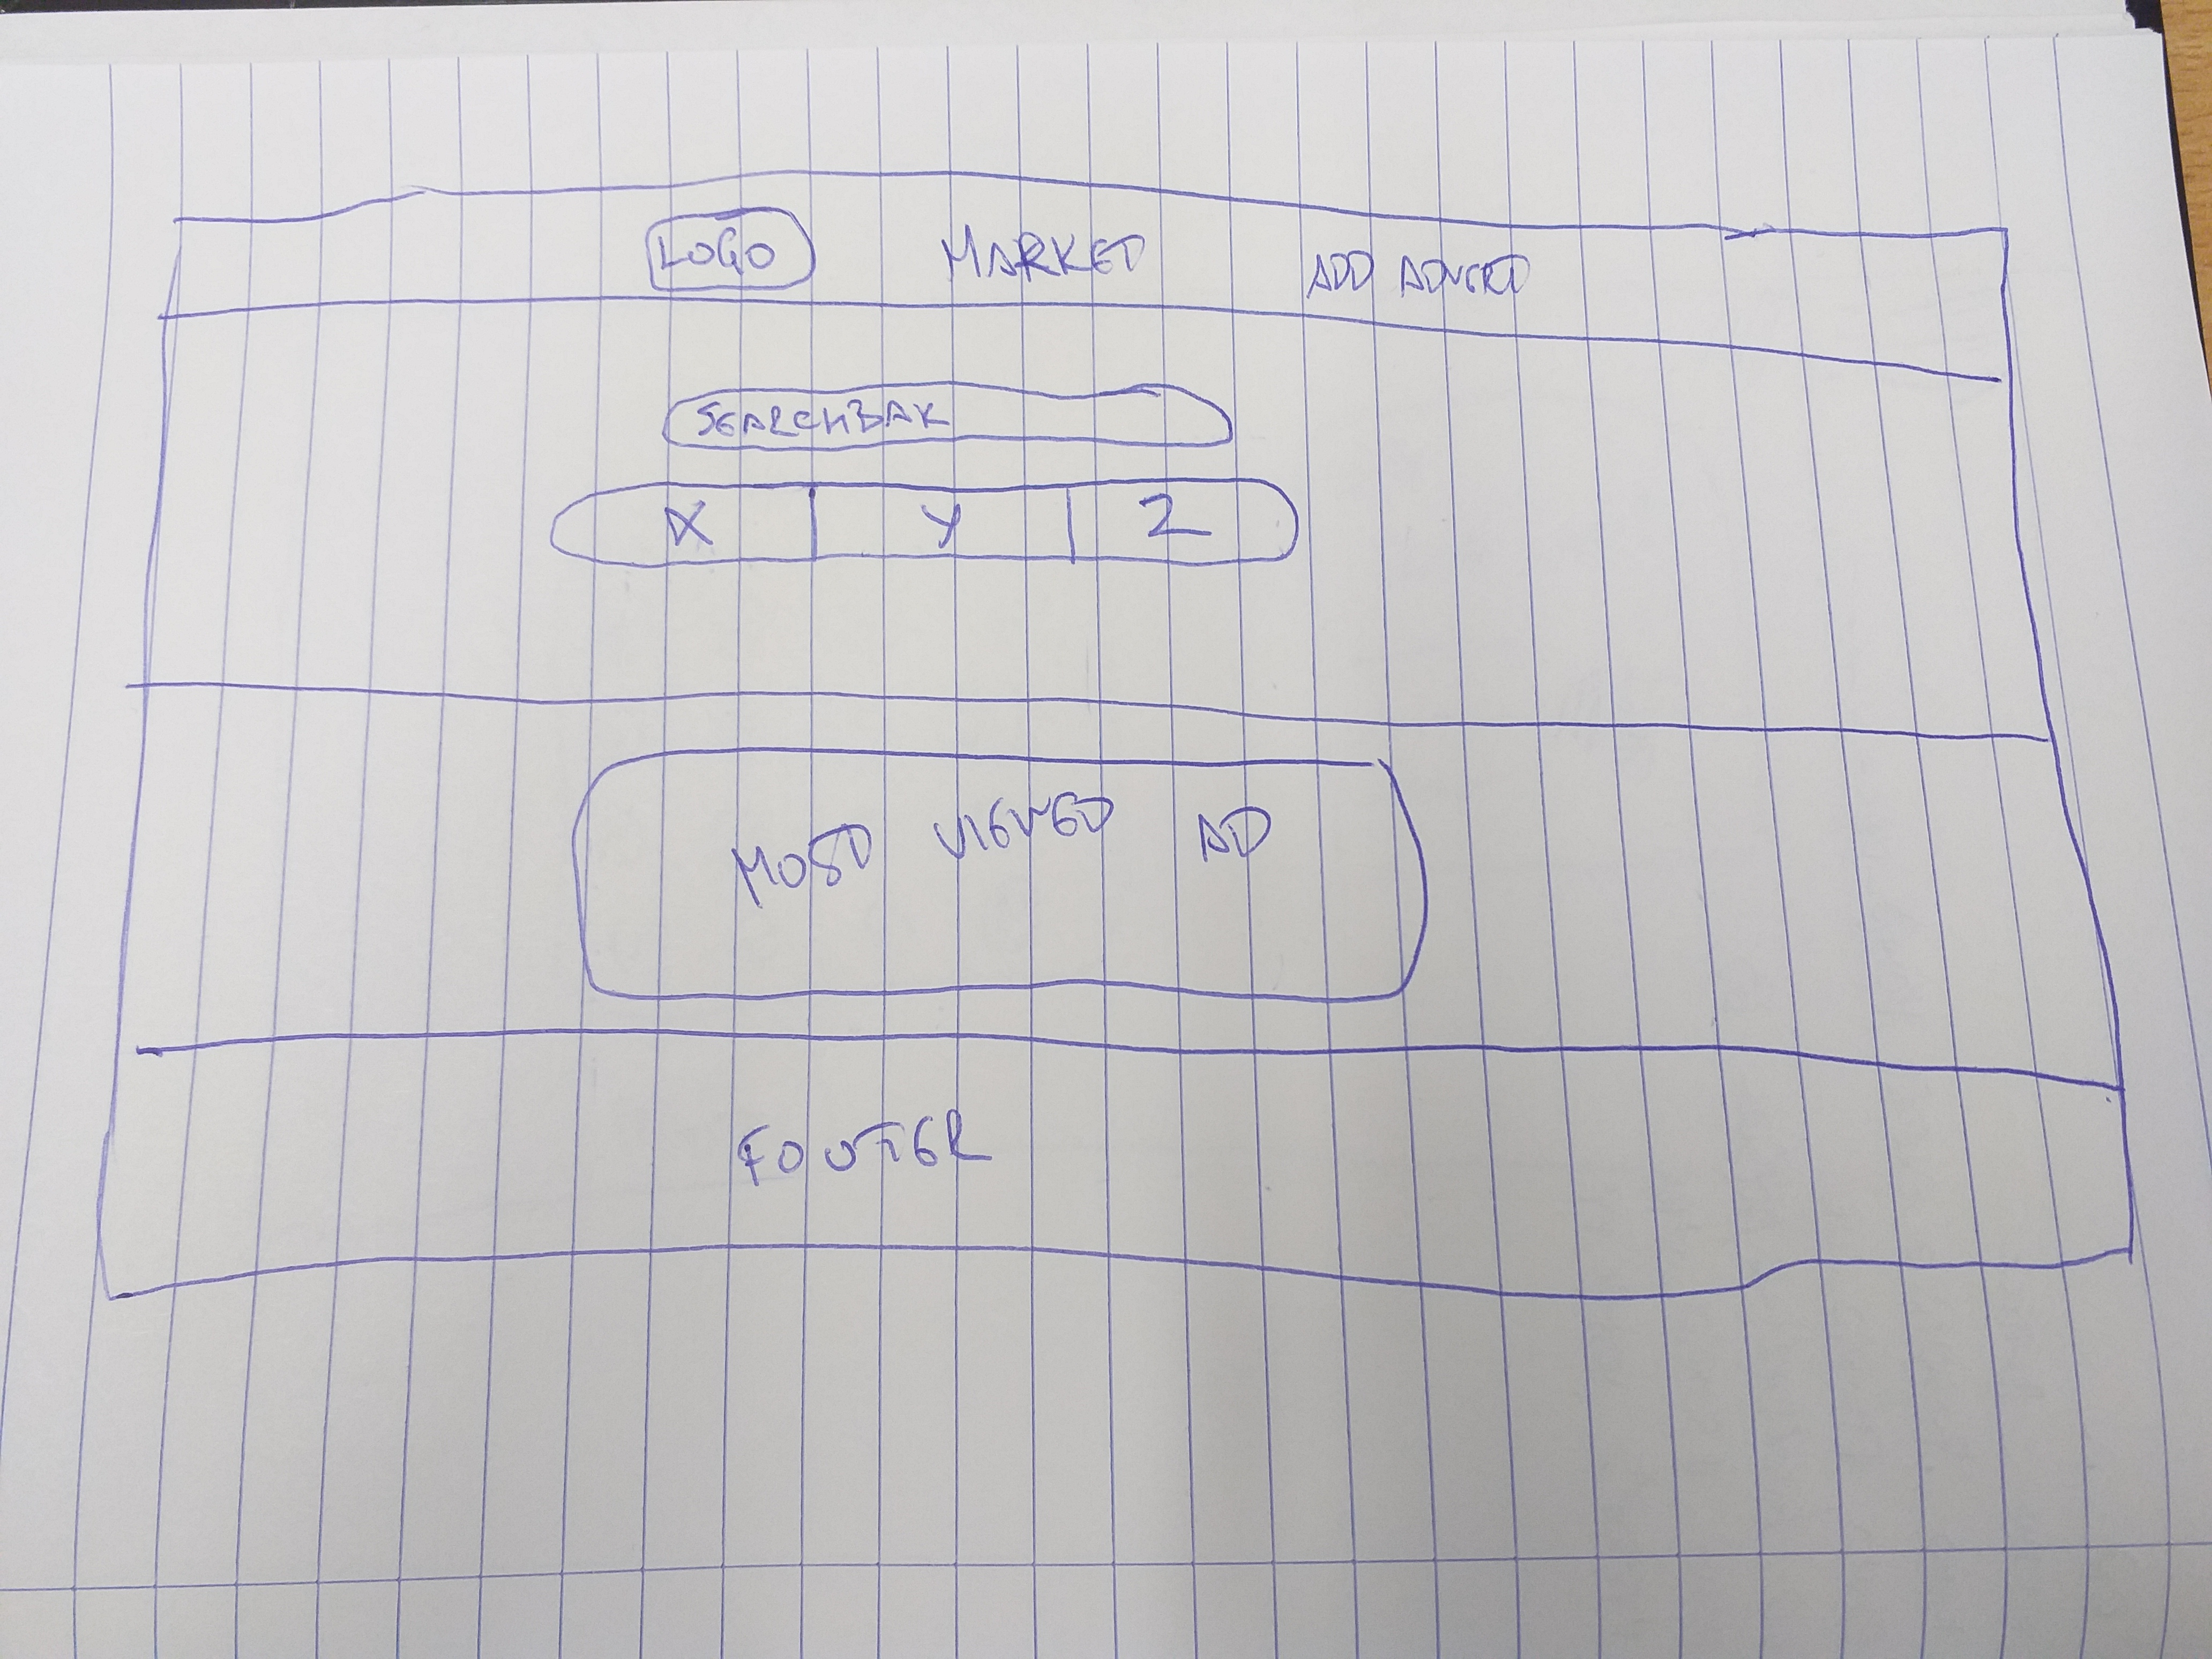 LOGO MARKET ADD ADVERT
SEARCHBAR
X Y Z
MOST VIEWED AD
FOOTER